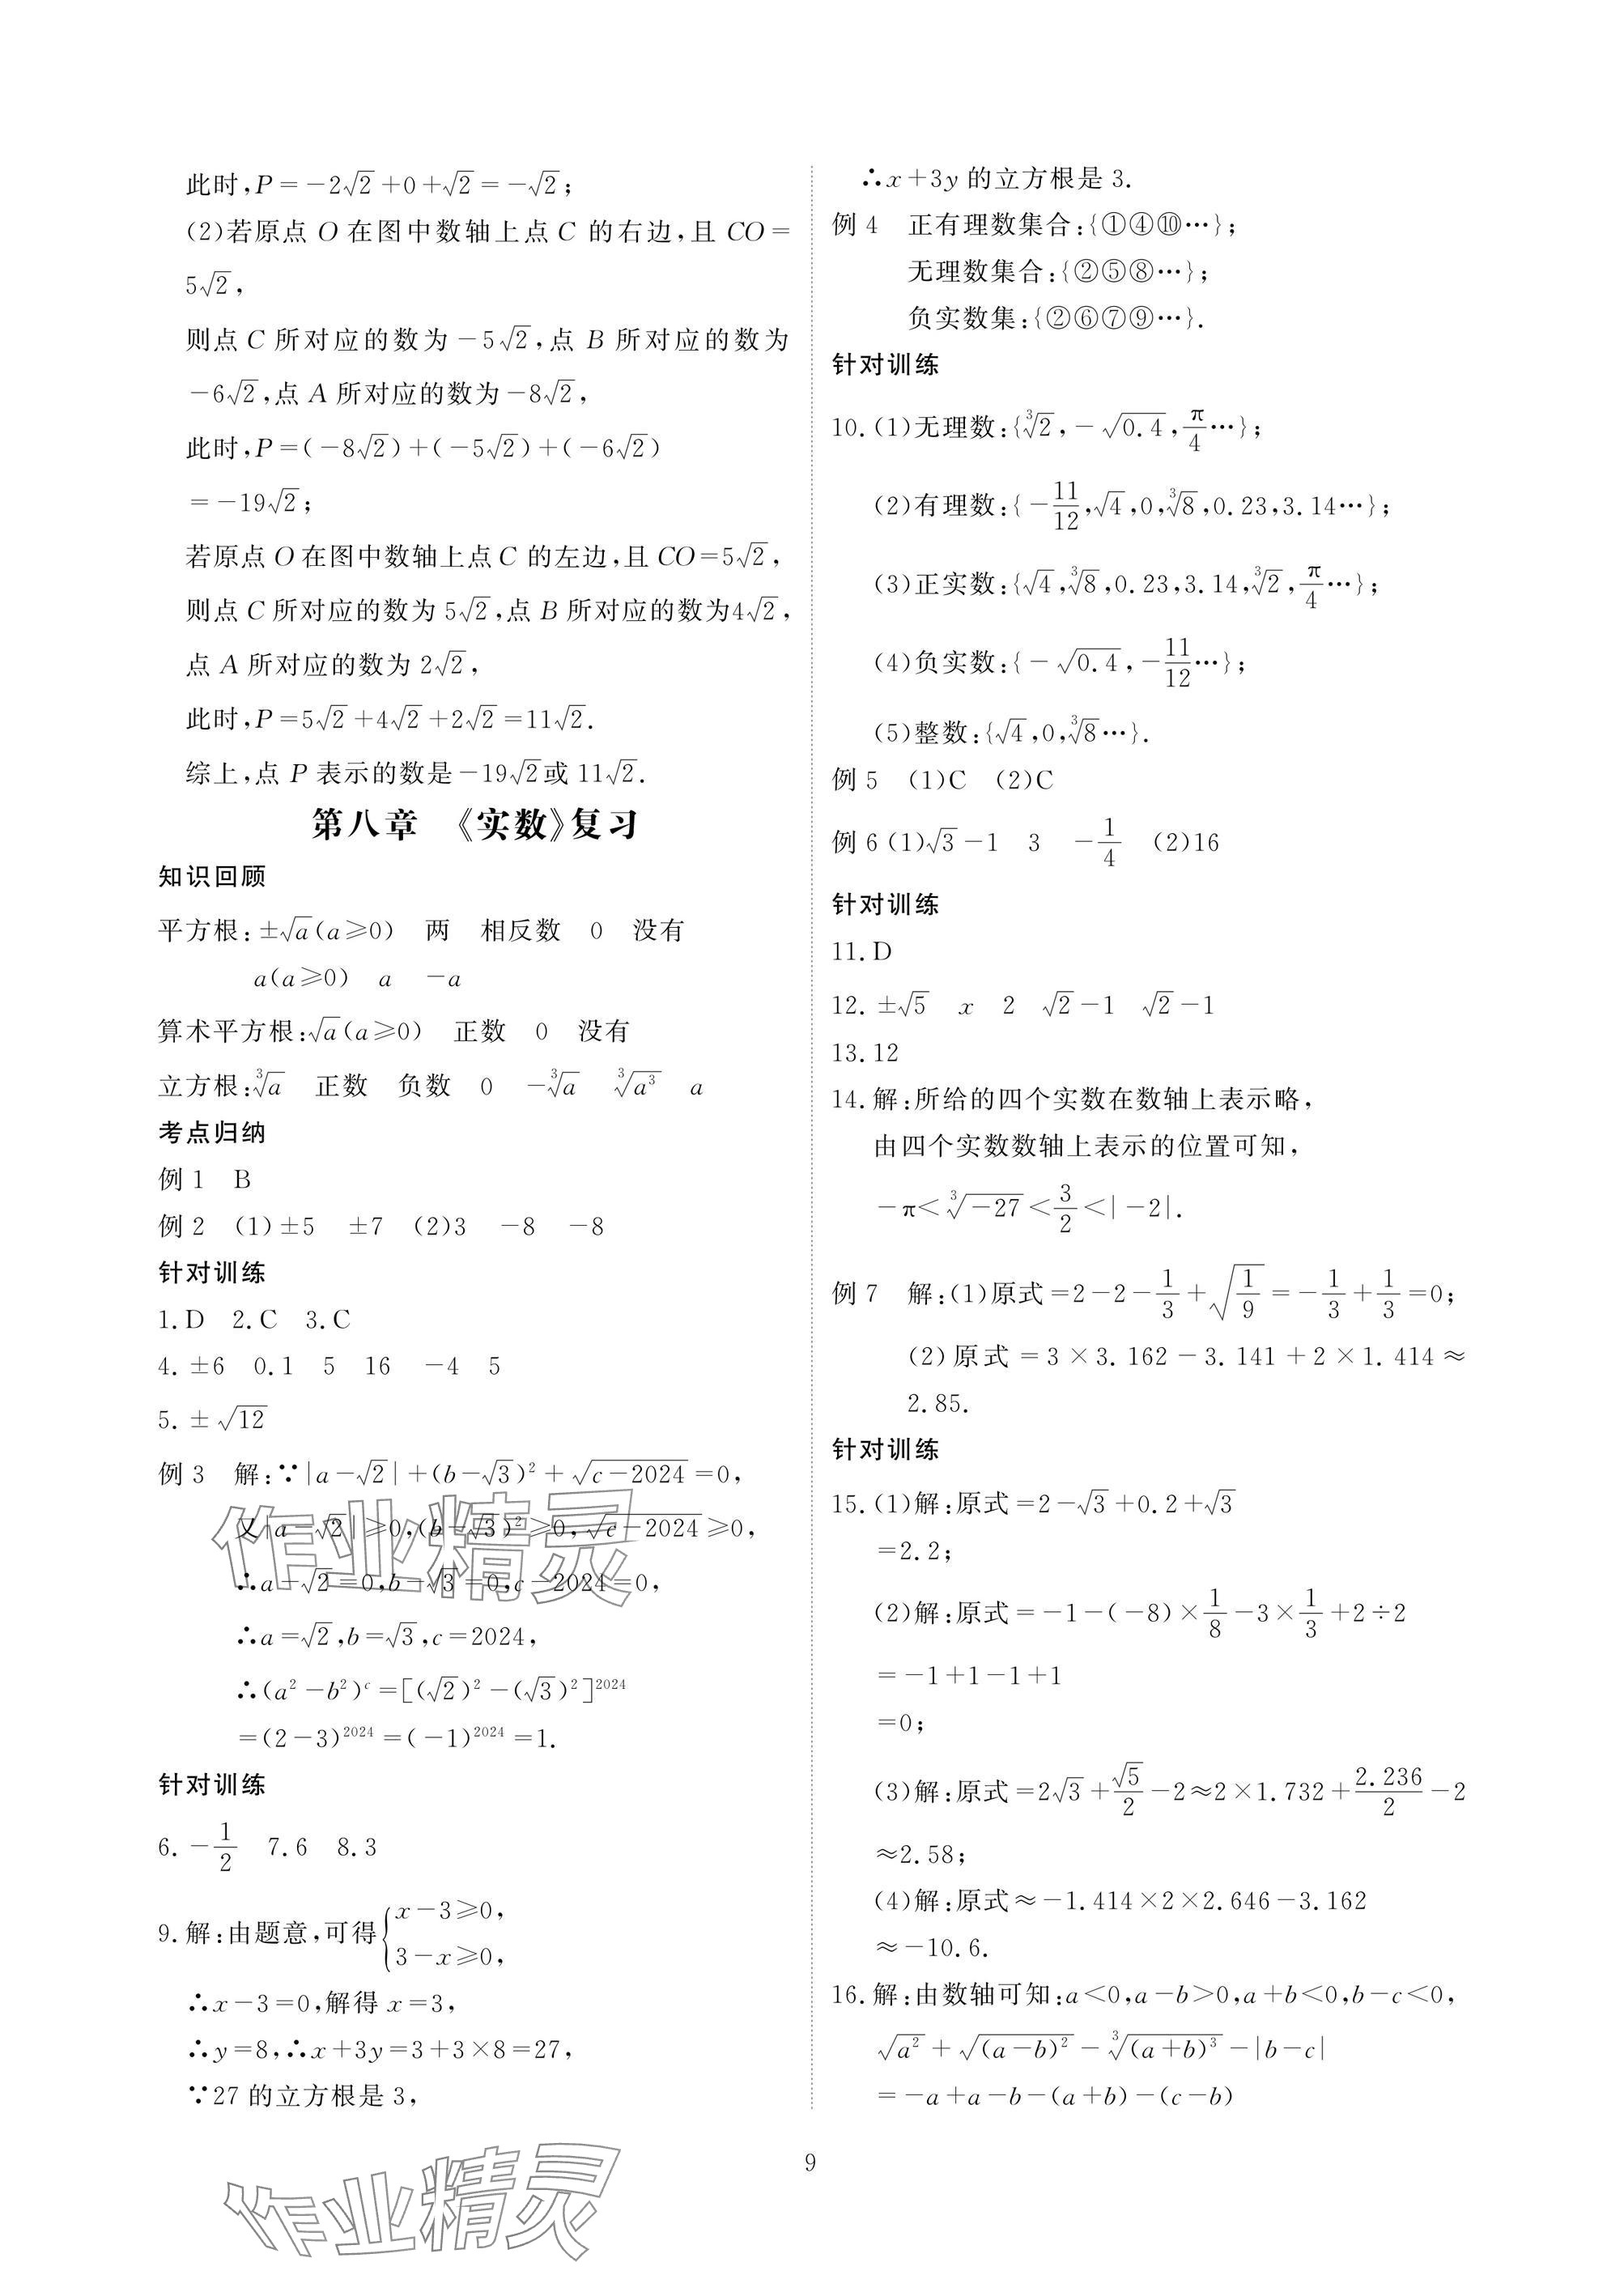 此时,P=-2√2+0+√2=-√2;
(2)若原点 O 在图中数轴上点 C 的右边,且 CO=
5√2,
则点 C 所对应的数为-5√2,点 B 所对应的数为
-6√2,点 A 所对应的数为-8√2,
此时,P=(-8√2)+(-5√2)+(-6√2)
=-19√2;
若原点 O 在图中数轴上点 C 的左边,且 CO=5√2,
则点 C 所对应的数为 5√2,点 B 所对应的数为4√2,
点 A 所对应的数为 2√2,
此时,P=5√2+4√2+2√2=11√2.
综上,点 P 表示的数是-19√2或 11√2.
第八章 《实数》复习
知识回顾
平方根:±√a(a≥0) 两 相反数 0 没有
a(a≥0) a -a
算术平方根:√a(a≥0) 正数 0 没有
立方根:∛a 正数 负数 0 -∛a ∛(a³) a
考点归纳
例 1 B
例 2 (1)±5 ±7 (2)3 -8 -8
针对训练
1.D 2.C 3.C
4.±6 0.1 5 16 -4 5
5.±√12
例 3 解:∵|a-√2|+(b-√3)²+√(c-2024)=0,
又|a-√2|≥0,(b-√3)²≥0,√(c-2024)≥0,
∴a-√2=0,b-√3=0,c-2024=0,
∴a=√2,b=√3,c=2024,
∴(a²-b²)ᶜ=[(√2)²-(√3)²]²⁰²⁴
=(2-3)²⁰²⁴=(-1)²⁰²⁴=1.
针对训练
6.-1/2 7.6 8.3
9.解:由题意,可得{x-3≥0,
3-x≥0,
∴x-3=0,解得 x=3,
∴y=8,∴x+3y=3+3×8=27,
∵27 的立方根是 3,
∴x+3y 的立方根是 3.
例 4 正有理数集合:{①④⑩…};
无理数集合:{②⑤⑧…};
负实数集:{②⑥⑦⑨…}.
针对训练
10.(1)无理数:{∛2,-√0.4,π/4…};
(2)有理数:{-11/12,√4,0,∛8,0.23,3.14…};
(3)正实数:{√4,∛8,0.23,3.14,∛2,π/4…};
(4)负实数:{-√0.4,-11/12…};
(5)整数:{√4,0,∛8…}.
例 5 (1)C (2)C
例 6 (1)√3-1 3 -1/4 (2)16
针对训练
11.D
12.±√5 x 2 √2-1 √2-1
13.12
14.解:所给的四个实数在数轴上表示略,
由四个实数数轴上表示的位置可知,
-π<∛(-27)<3/2<|-2|.
例 7 解:(1)原式=2-2-1/3+√(1/9)=-1/3+1/3=0;
(2)原式=3×3.162-3.141+2×1.414≈
2.85.
针对训练
15.(1)解:原式=2-√3+0.2+√3
=2.2;
(2)解:原式=-1-(-8)×1/8-3×1/3+2÷2
=-1+1-1+1
=0;
(3)解:原式=2√3+√5/2-2≈2×1.732+2.236/2-2
≈2.58;
(4)解:原式≈-1.414×2×2.646-3.162
≈-10.6.
16.解:由数轴可知:a<0,a-b>0,a+b<0,b-c<0,
√(a²)+√((a-b)²)-∛((a+b)³)-|b-c|
=-a+a-b-(a+b)-(c-b)
9
作业精灵
作业精灵